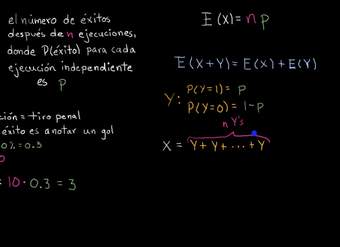 el número de éxitos
después de n ejecuciones,
donde P(éxito) para cada
ejecución independiente
es p
ción = tiro penal
éxito es anotar un gol
0% = 0.3
= 10 · 0.3 = 3
E(X) = np
E(X+Y) = E(X) + E(Y)
Y: P(Y=1) = p
P(Y=0) = 1-p
n Y's
X = Y + Y + ... + Y